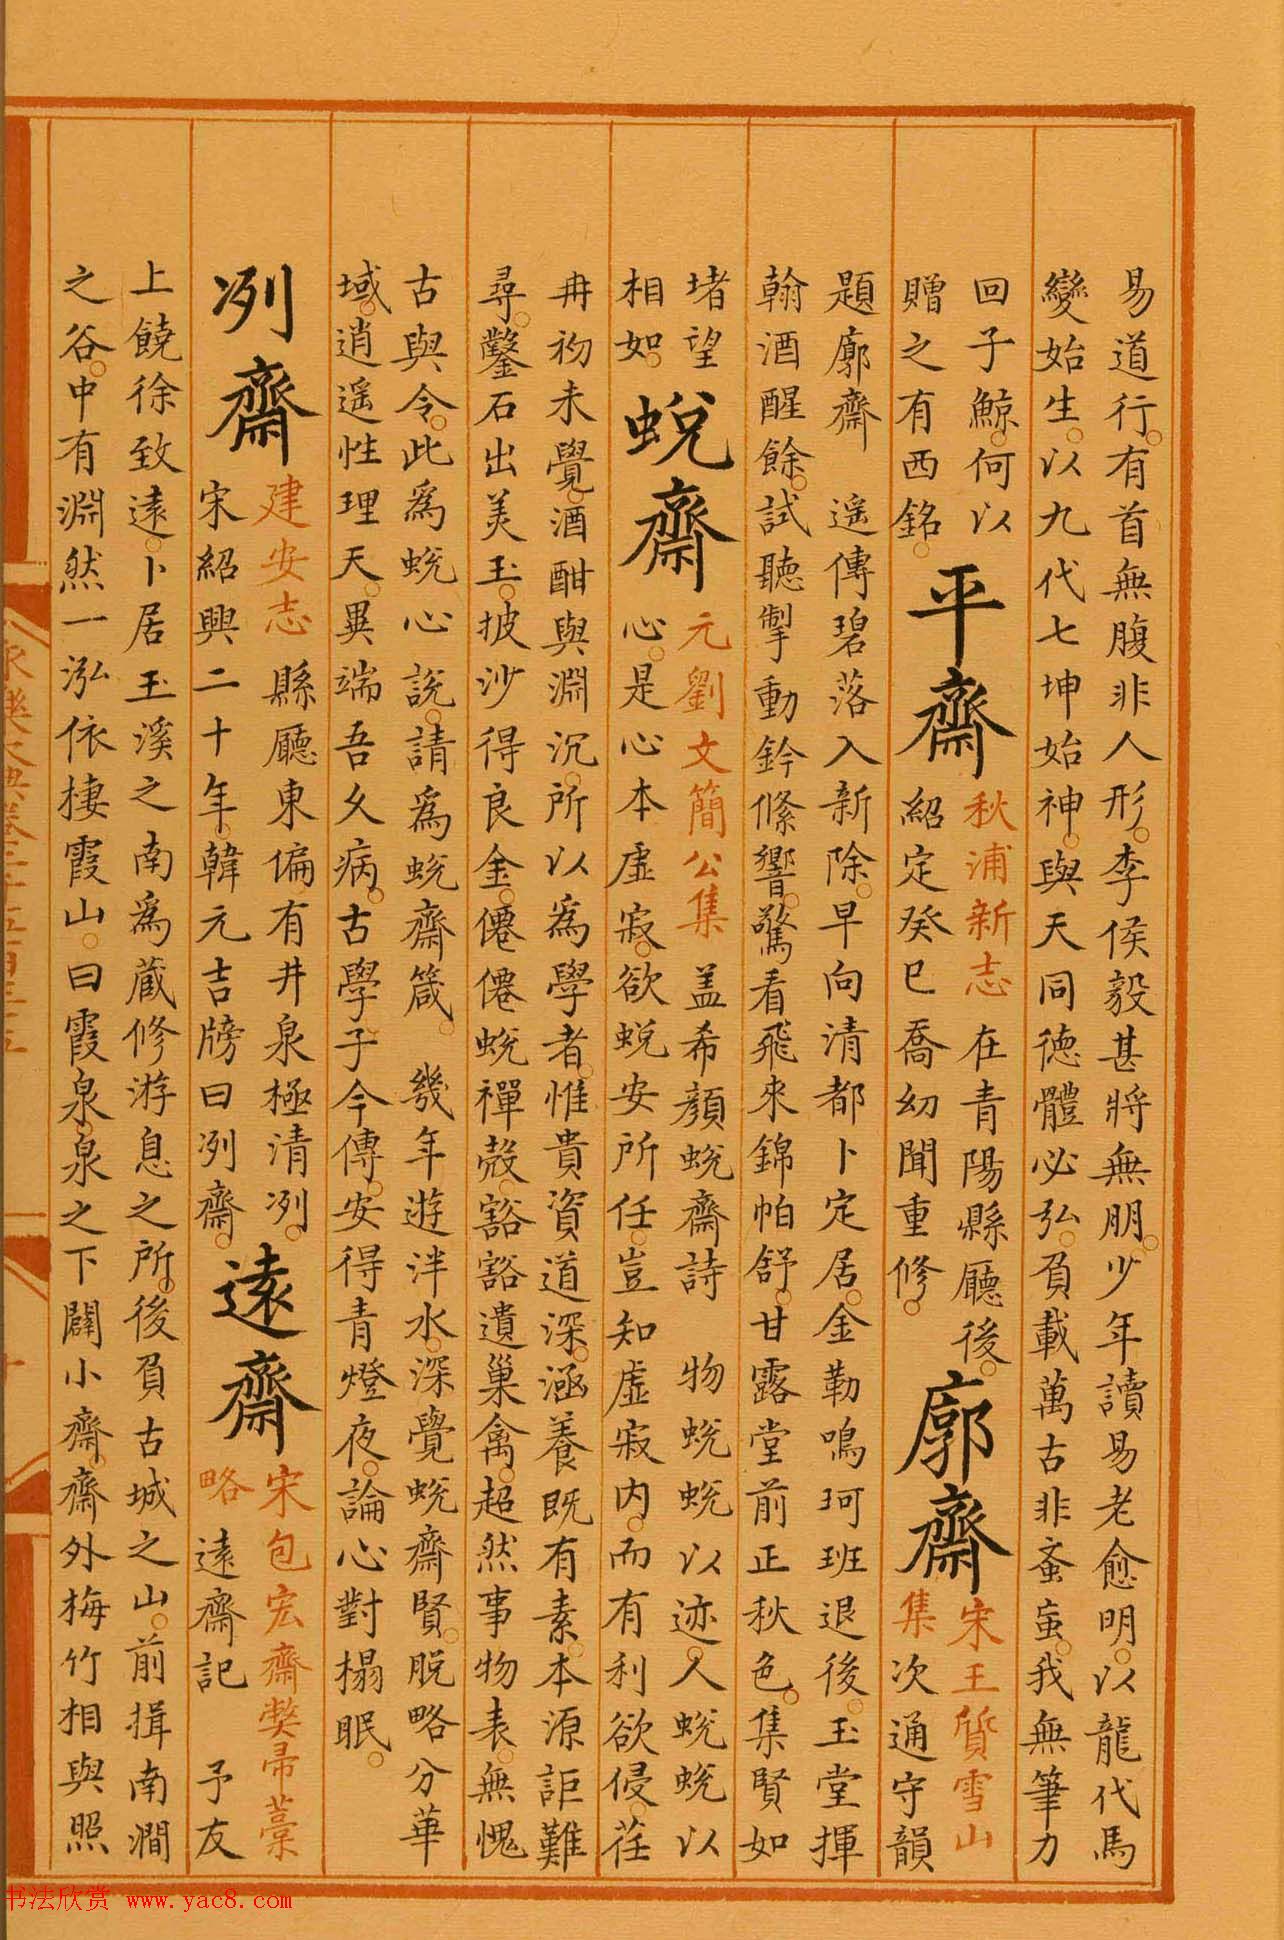 易道行有首無腹非人形李侯毅甚將無朋少年讀易老愈明以龍代馬
變始生以九代七坤始神與天同德體必弘負載萬古非蚉䖟我無筆力
回子鯨何以
贈之有西銘
平齋
秋浦新志
在青陽縣廳後
紹定癸巳喬幼聞重修
廓齋
宋王質雪山
集
次通守韻
題廓齋 遥傳碧落入新除早向清都卜定居金勒鳴珂班退後玉堂揮
翰酒醒餘試聽掣動鈴絛響驚看飛來錦帕舒甘露堂前正秋色集賢如
堵望
相如
蛻齋
元劉文簡公集
盖希顔蛻齋詩 物蛻蛻以迹人蛻蛻以
心是心本虛寂欲蛻安所任豈知虛寂内而有利欲侵荏
冉初未覺酒酣與淵沉所以為學者惟貴資道深涵養既有素本源詎難
尋鑿石出美玉披沙得良金僊僊蛻禪殼豁豁遺巢禽超然事物表無愧
古與今此為蛻心說請為蛻齋箴 幾年遊泮水深覺蛻齋賢脱略分華
域逍遥性理天異端吾久病古學子今傳安得青燈夜論心對榻眠
冽齋
建安志
縣廳東偏有井泉極清冽
宋紹興二十年韓元吉牓曰冽齋
遠齋
宋包宏齋獘帚藁
略
遠齋記 予友
上饒徐致遠卜居玉溪之南為藏修游息之所後負古城之山前揖南澗
之谷中有淵然一泓依棲霞山曰霞泉泉之下闢小齋齋外梅竹相與照
书法欣赏 www.yac8.com